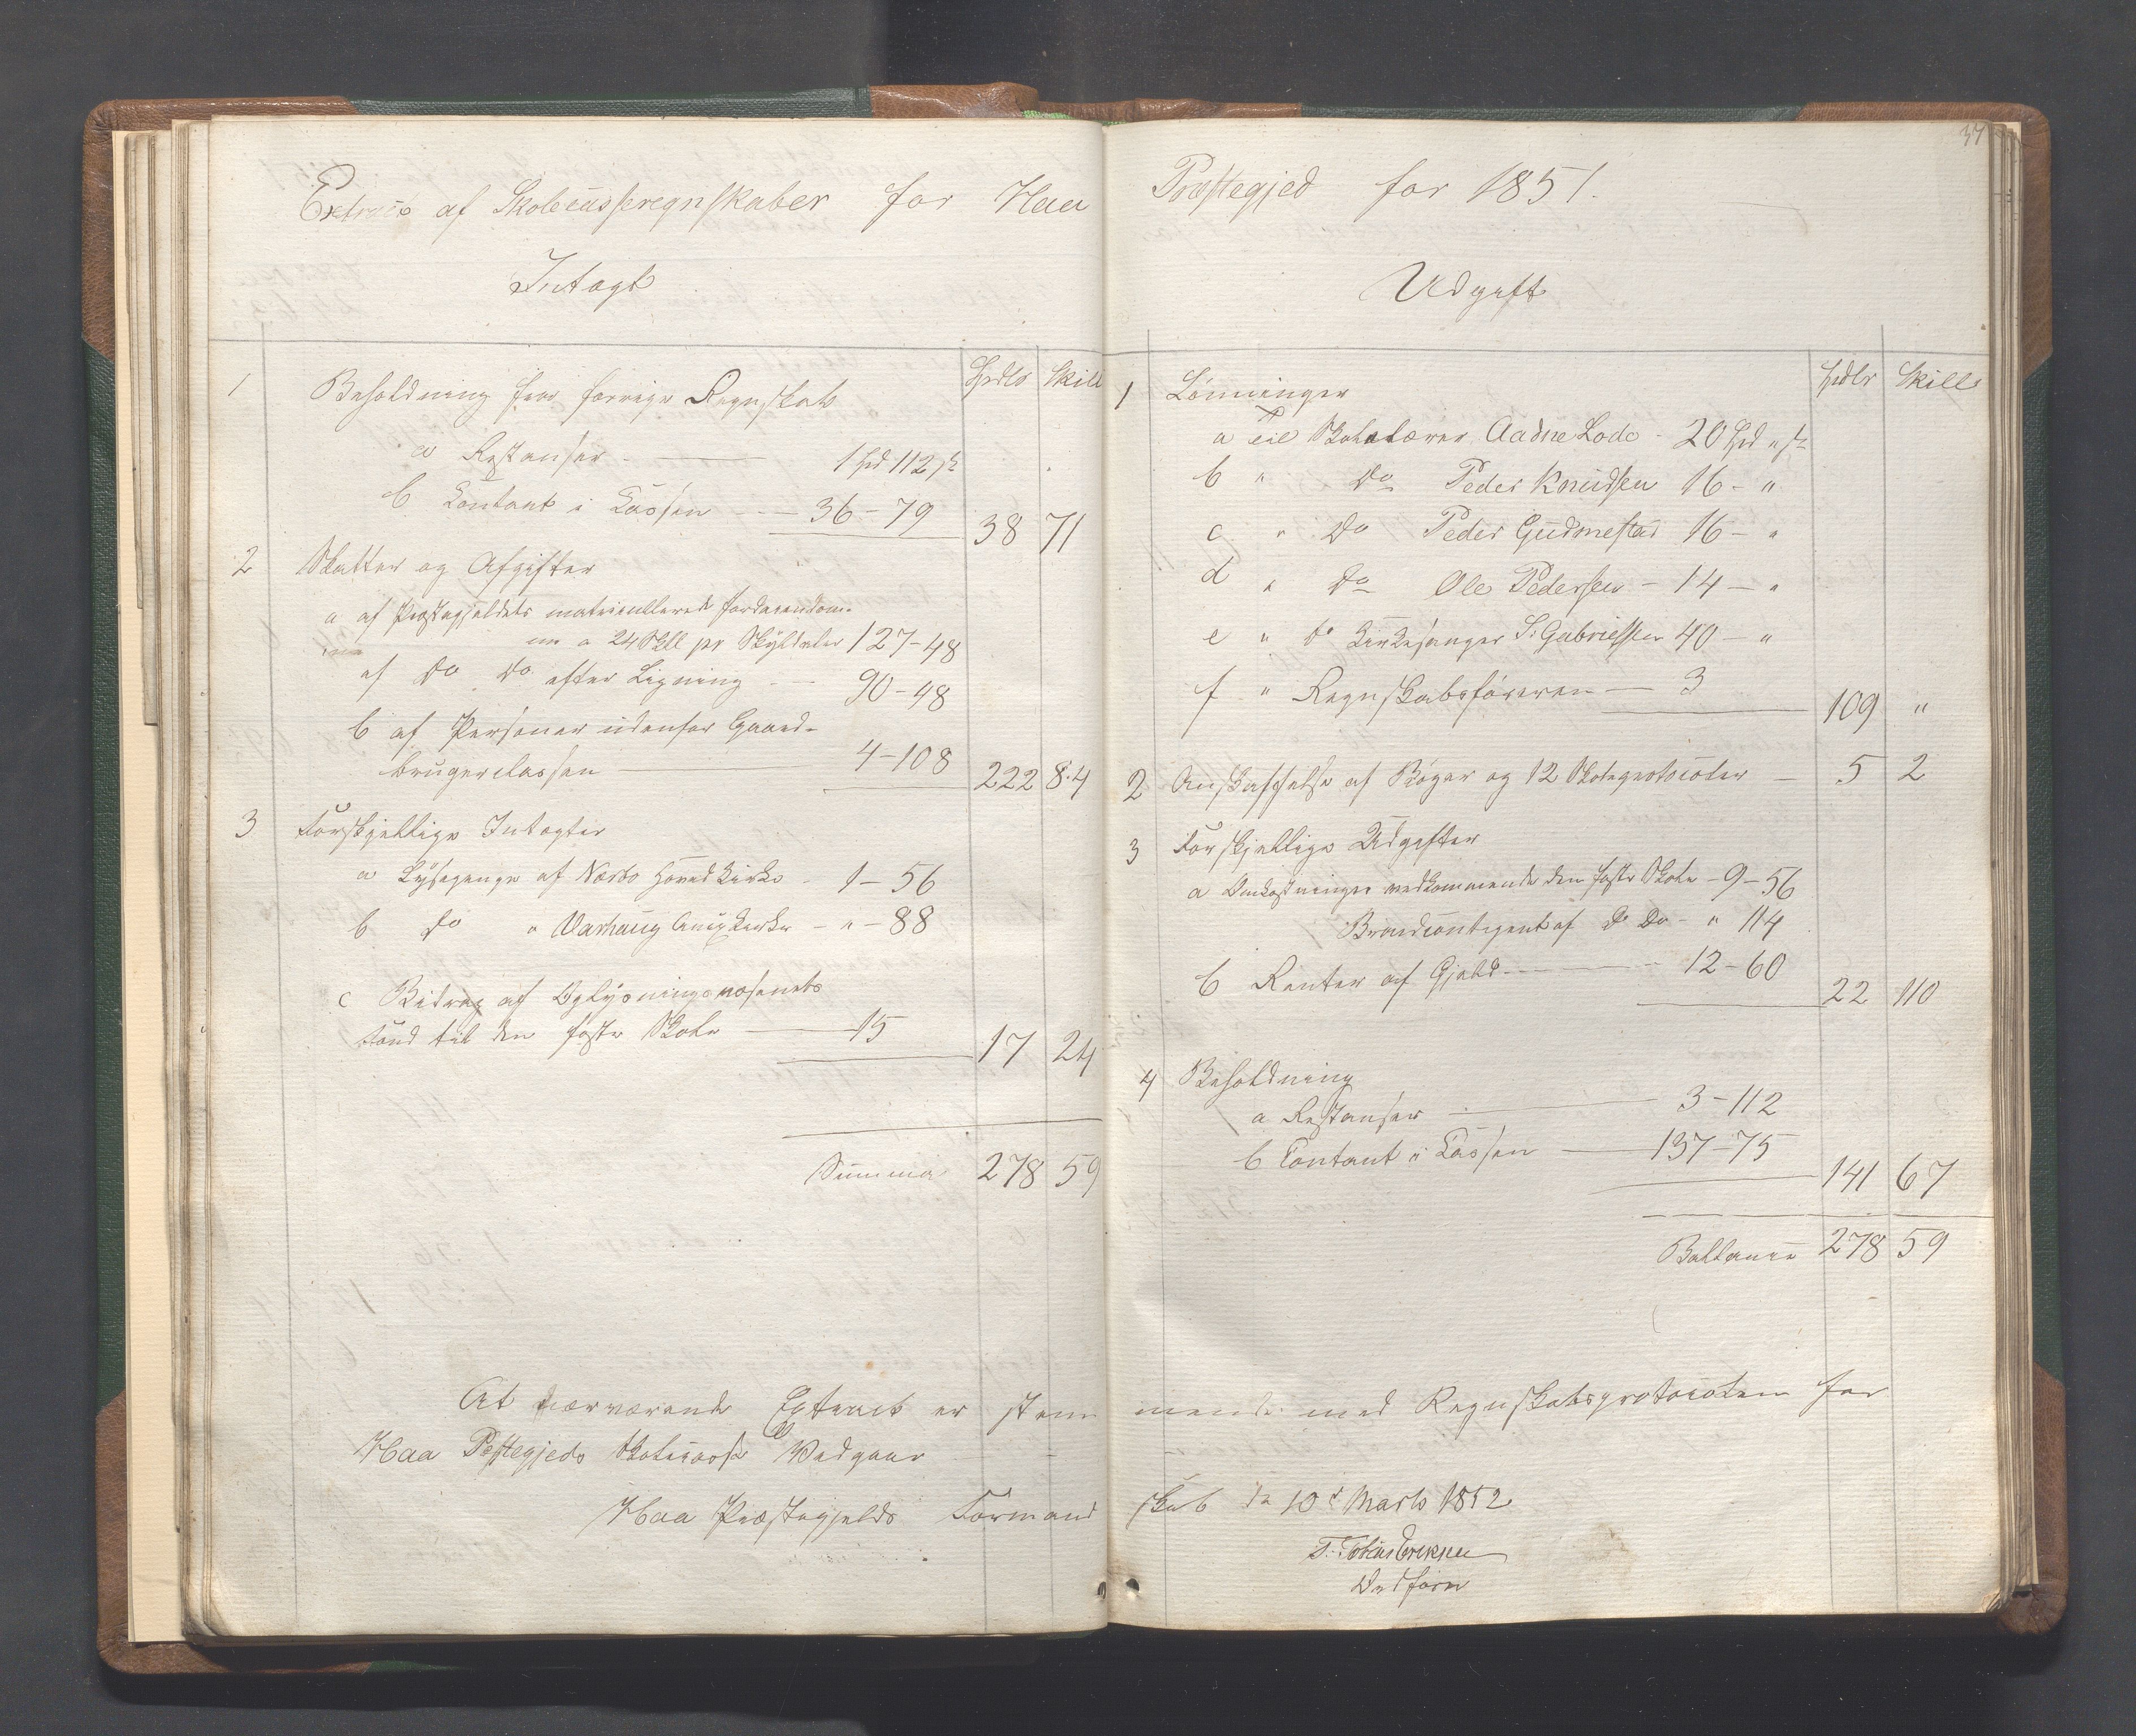 37
Extract af Skolecasseregnskabet for Haa Præstegjed for 1851.
Intægt
Spdlr Skill
1 Beholdning fra forrige Regnskab
a Restanser 1 Spd 112 sk
b Contant i Cassen - - 36 - 79 38 71
2 Skatter og Afgifter
a af Præstegjeldets matriculerede Jordeiendom-
me a 24 Skll pr Skylddaler 127-48
af Do Do efter Ligning - - 90-48
b af Personer udenfor Gaard-
brugerclassen 4-108 222 84
3 Forskjellige Intægter
a Lysepenge af Nærbø Hovedkirke - 1-56
b Do " Varhaug Anexkirke - " - 88
c Bidrag af Oplysningsvæsenets
Fond til den faste Skole 15 17 24
Summa 278 59
Udgift
Spdlr Skill
1 Lønninger
a Til Skolelærer Aadne Lode - 20 Spd " sk
b " Do Peder Knudsen 16 - "
c " Do Peder Gudmestad 16 - "
d " Do Ole Pedersen - 14 - "
e " Do Kirkesanger S. Gabrielsen 40 - "
f " Regnskabsføreren - 3 109 "
2 Anskaffelse af Bøger og 12 Skoleprotocoler - 5 2
3 Forskjellige Udgifter
a Omkostninger vedkommende den faste Skole - 9-56
Brandcontigent af Do Do - " 114
b Renter af Gjeld - 12-60 22 110
4 Beholdning
a Restanser 3-112
b Contant i Cassen 137-75 141 67
Ballance 278 59
At nærværende Extract er stemmende med Regnskabsprotocolen for
Haa Pestegjeds Skolecasse Vedgaar
Haa Præstegjelds Formandskab d 10d Marts 1852
T. Tobias Eriksen